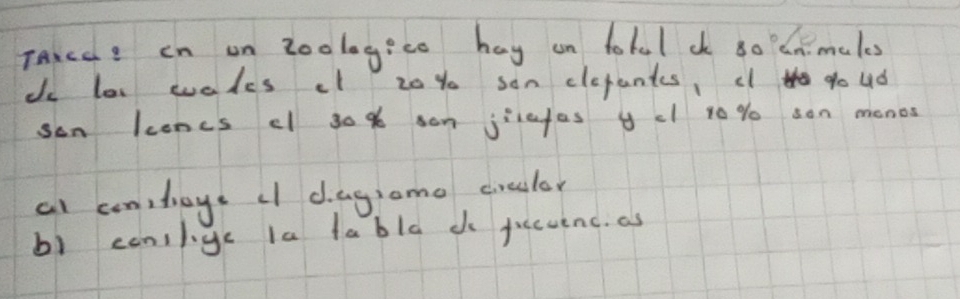 TAREA: en un zoologico hay un total de 80 animales
de los cuales el 20 % son elefantes, el % 40
son leones el 30 % son jirafas y el 10 % son monos
a) construye el diagrama circular
b) construye la tabla de frecuencias